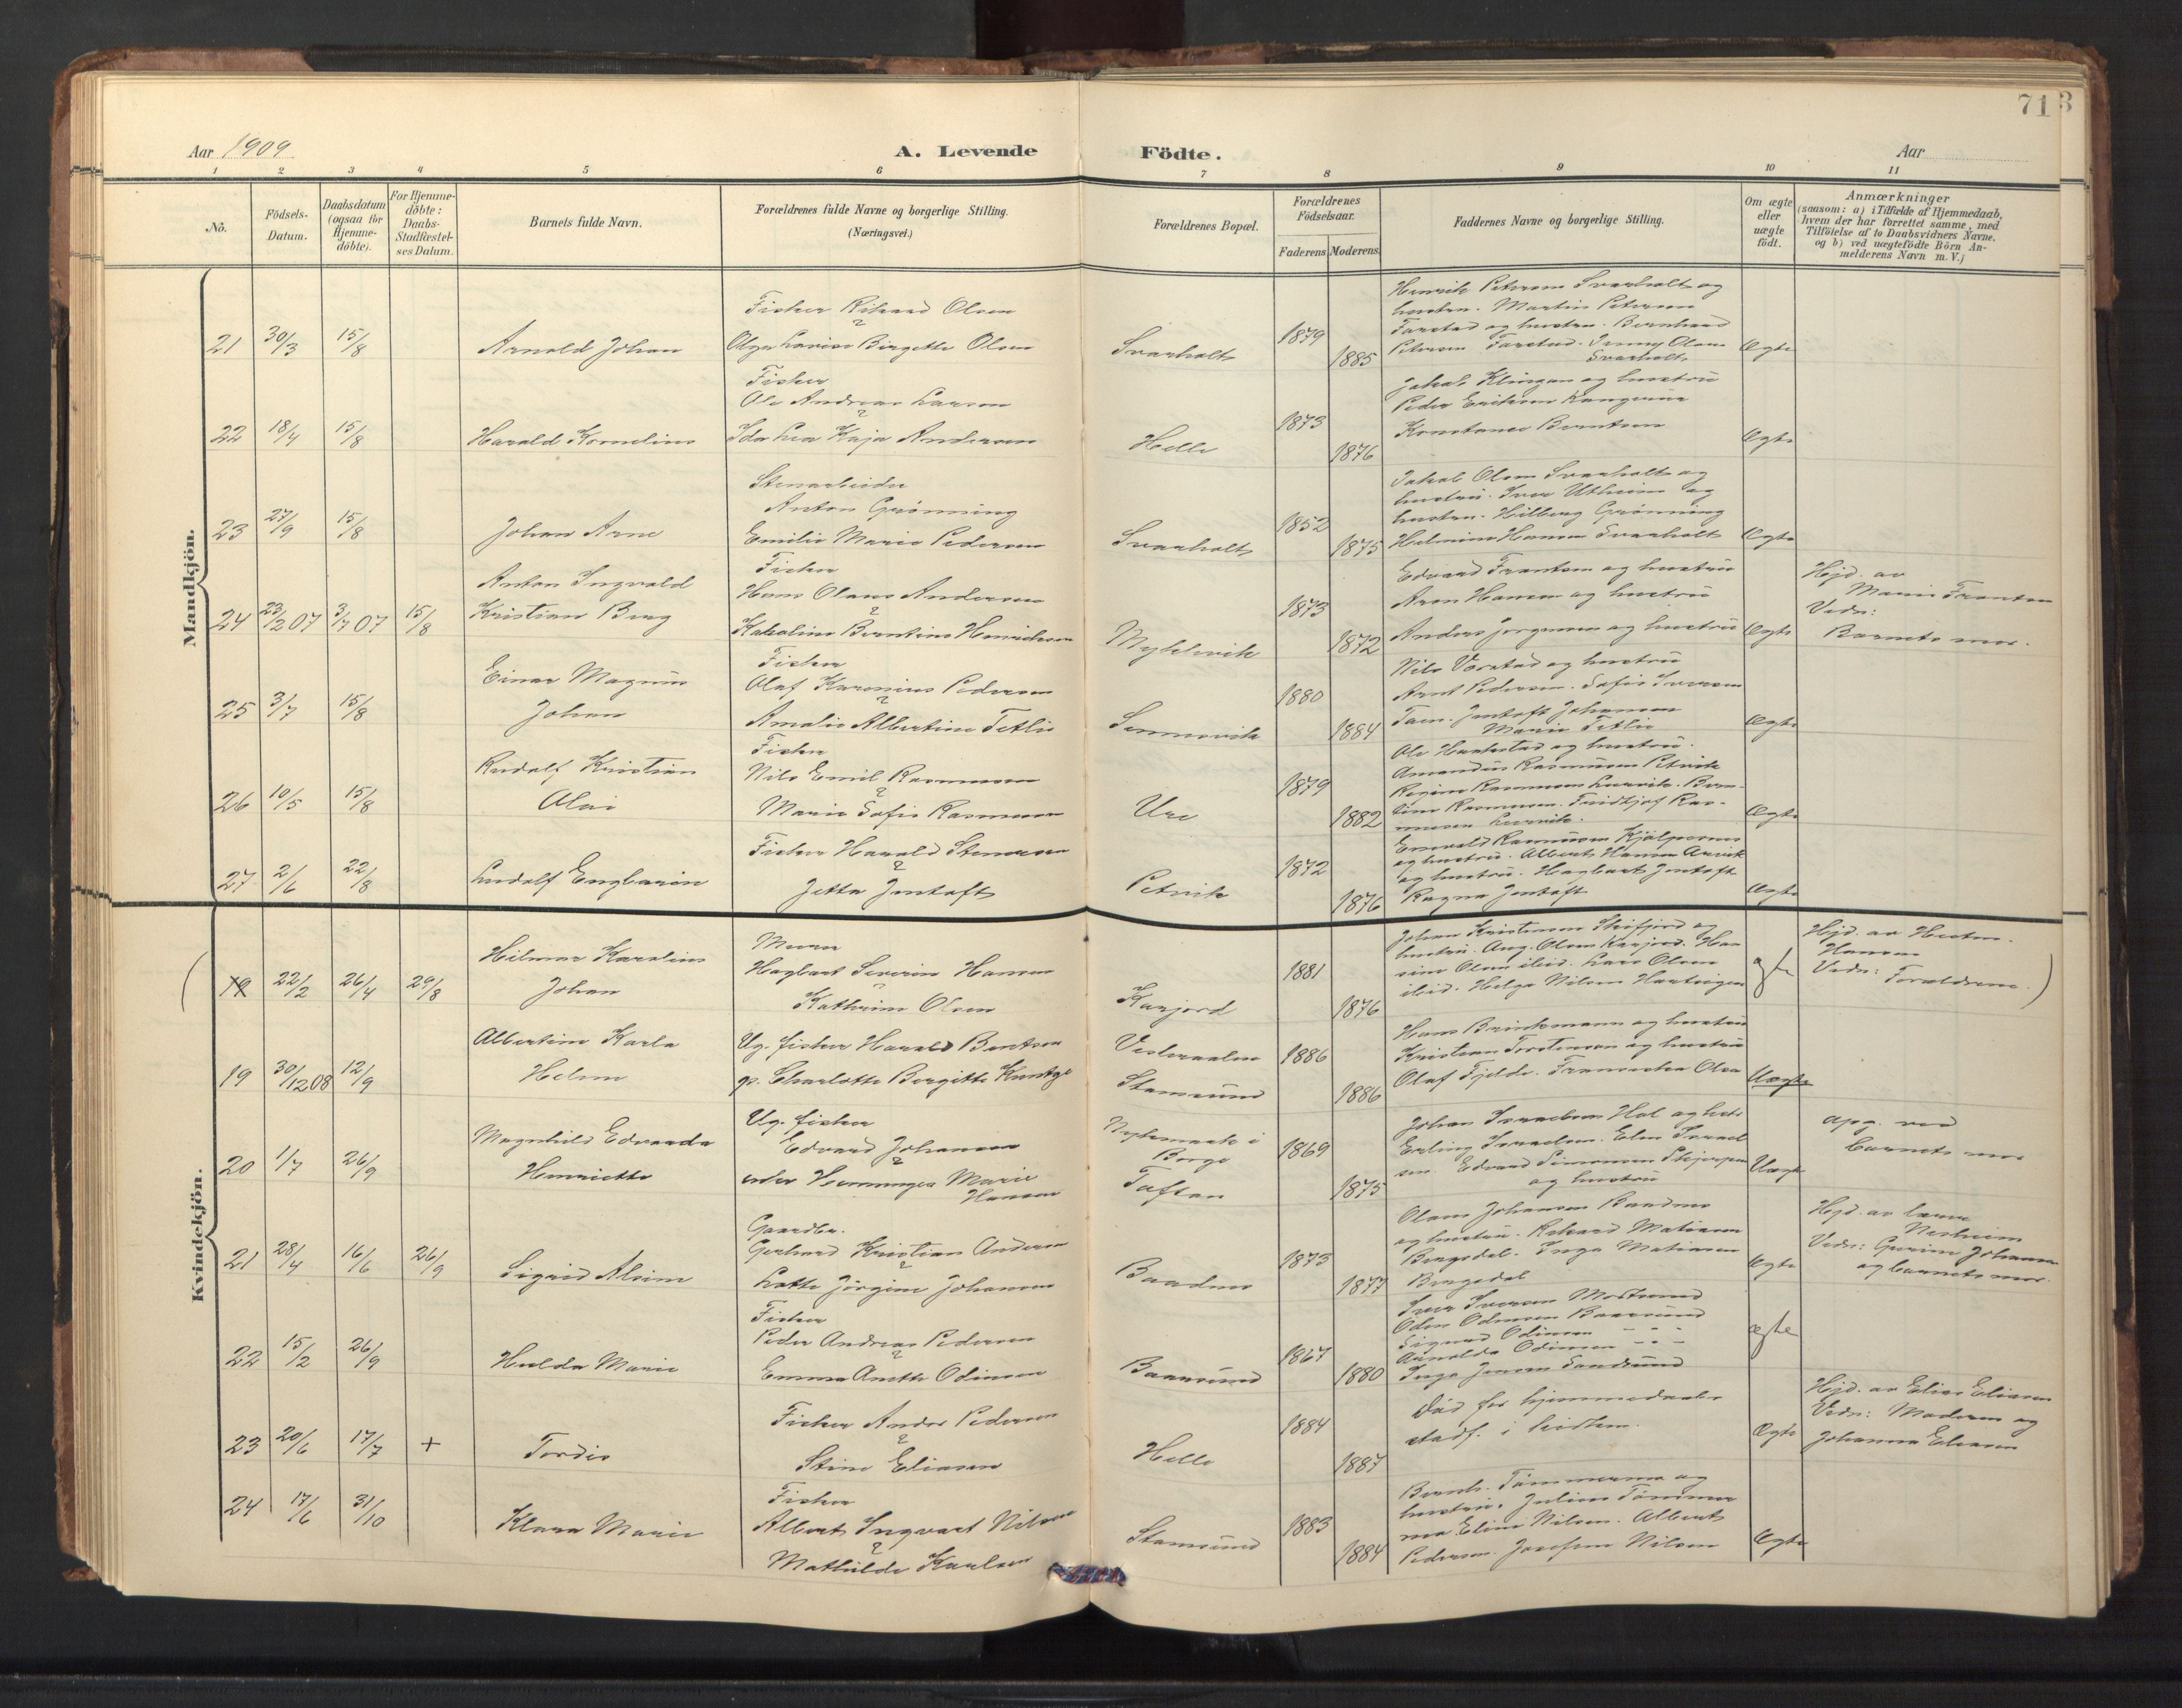 713
Aar 1909
A. Levende Födte.
Aar
1 2 3 4 5 6 7 8 9 10 11
No.
Födsels-
Datum.
Daabsdatum
(ogsaa for
Hjemme-
döbte).
For Hjemme-
döbte:
Daabs-
Stadfæstel-
ses Datum.
Barnets fulde Navn.
Forældrenes fulde Navne og borgerlige Stilling.
(Næringsvei.)
Forældrenes Bopæl.
Forældrenes
Födselsaar.
Faderens Moderens
Faddernes Navne og borgerlige Stilling.
Om ægte
eller
uægte
födt.
Anmærkninger
(saasom: a) i Tilfælde af Hjemmedaab,
hvem der har forrettet samme, med
Tilföielse af to Daabsvidners Navne,
og b) ved uægtefödte Börn An-
melderens Navn m. V.)
Mandkjön.
21 30/3 15/8
Arnold Johan
Fisker Rikard Olsen
Olga Lovise Birgitte Olsen
Svarholt
1879
1885
Henrik Petersen Svarholt og
hustru. Martin Petersen
Farstad og hustru. Bernhard
Petersen Farstad. Olsen
Svarholt
Ægte
22 18/4 15/8
Harald Kornelius
Fisker
Ole Andreas Larsen
Ida Lea Kaja Andersen
Helle
1873
1876
Jakob Klingan og hustru
Peder Eriksen
Konstance Berntsen
Ægte
23 27/9 15/8
Johan Arne
Stenarbeider
Anton Grønning
Emilie Marie Pedersen
Svarholt
1852
1875
Jakob Olsen Svarholt og
hustru. Iver Utheim og
hustru. Hilberg Grønning
Helmine Hansen Svarholt
Ægte
24 23/2 07 3/7 07 15/8
Anton Ingvald
Kristian Berg
Fisker
Hans Olaus Andersen
Kakaline Berntine Henriksen
Myklevik
1873
1872
Edvard Frantsen og hustru
Aron Hansen og hustru
Anders Jørgensen og hustru
Ægte
Hjd. av
Marie Frantsen
Vidn:
Barnets mor.
25 3/7 15/8
Einar Magnus
Johan
Fisker
Olaf Karenius Pedersen
Amalie Albertine Tetlie
Sennesvik
1880
1884
Nils Værstad og hustru
Arnt Pedersen. Sofie Iversen
Jentoft Johansen
Marie Tetlie
Ægte
26 10/5 15/8
Rudolf Kristian
Olai
Fisker
Nils Emil Rasmussen
Marie Sofie Rasmussen
Ure
1879
1882
Ole Haakstad og hustru.
Amandus Rasmussen Petvik
Regine Rasmussen Leirvik. Bern-
tine Rasmussen. Fridtjof Ras-
mussen Leirvik.
Ægte
27 2/6 22/8
Ludolf Engbarin
Fisker Harald Stensen
Jetta Jentoft
Petvik
1872
1876
Enevald Rasmussen
og hustru. Albert Hansen
og hustru. Hagbart Jentoft
Ragna Jentoft
Ægte
Kvindekjön.
19 22/2 26/4 29/8
Hilmar Karelius
Johan
Murer
Hagbart Severin Hansen
Kathrine Olsen
Karjord
1881
1876
Johan Kristensen Skifjord og
hustru. Aug. Olsen Karjord. Han
sine Olsen ibid. Lars Olsen
ibid. Helga Nilsen
ægte
Hjd. av
Hansen
Vidn: Forældrene.
19 30/12 08 12/9
Albertine Karla
Helene
Ug. fisker Harald Bentsen
p. Charlotte Bergitte Kuntze
Vesteraalen
Stamsund
1886
1886
Hans Brinkmann og hustru
Kristian Torstensen og hustru
Olaf Fjelde. Franciska Olsen
Uægte
20 1/7 26/9
Magnhild Edvarda
Henriette
Ug. fisker
Edvard Johansen
enke Henninges Marie
Hansen
Borge
Taftan
1869
1875
Johan Israelsen Hol og
Erling Israelsen. Elen Israel
sen. Edvard Simonsen
og hustru
Uægte
opg. ved
barnets mor
21 28/4 16/6 26/9
Sigrid Alvine
Gaardbr.
Gerhard Kristian Andersen
Lotte Jørgine Johansen
Baadnes
1873
1877
Olaus Johansen Baadnes
og hustru. Rikard Matiasen
Bergsdal. Inga Matiasen
Bergsdal
Ægte
Hjd. av lærer
Nesheim
Vidn: Gurine Johansen
og barnets mor.
22 15/2 26/9
Hulda Marie
Fisker
Peder Andreas Pedersen
Emma Anette Odinsen
Baarsund
1867
1880
Iver Iversen Mortsund
Odin Odinsen Baarsund
Sigurd Odinsen - " -
Arnolda Odinsen - " -
Inga Jensen Sandsund
ægte
23 20/6 17/7 +
Tordis
Fisker Andor Pedersen
Stine Eliasen
Helle
1884
1887
Død før hjemmedaaben
stadf. i kirken.
Ægte
Hjd. av Elias Eliasen
Vidn: Moderen og
Johanna Eliasen
24 17/6 31/10
Klara Marie
Fisker
Albert Ingvart Nilsen
Mathilde Karlsen
Stamsund
1883
1884
Bernh. Tømmermo og
hustru. Julius Tømmer
mo Eline Nilsen. Albert
Pedersen. Josefine Nilsen
Ægte